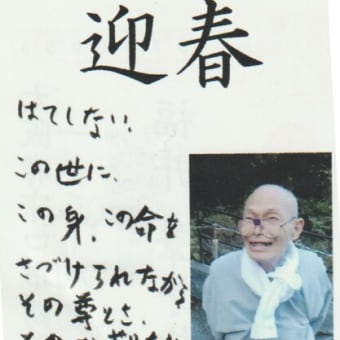 迎春
はてしない、
この世に、
この身、この命を
さづけられながら
その尊とさ、